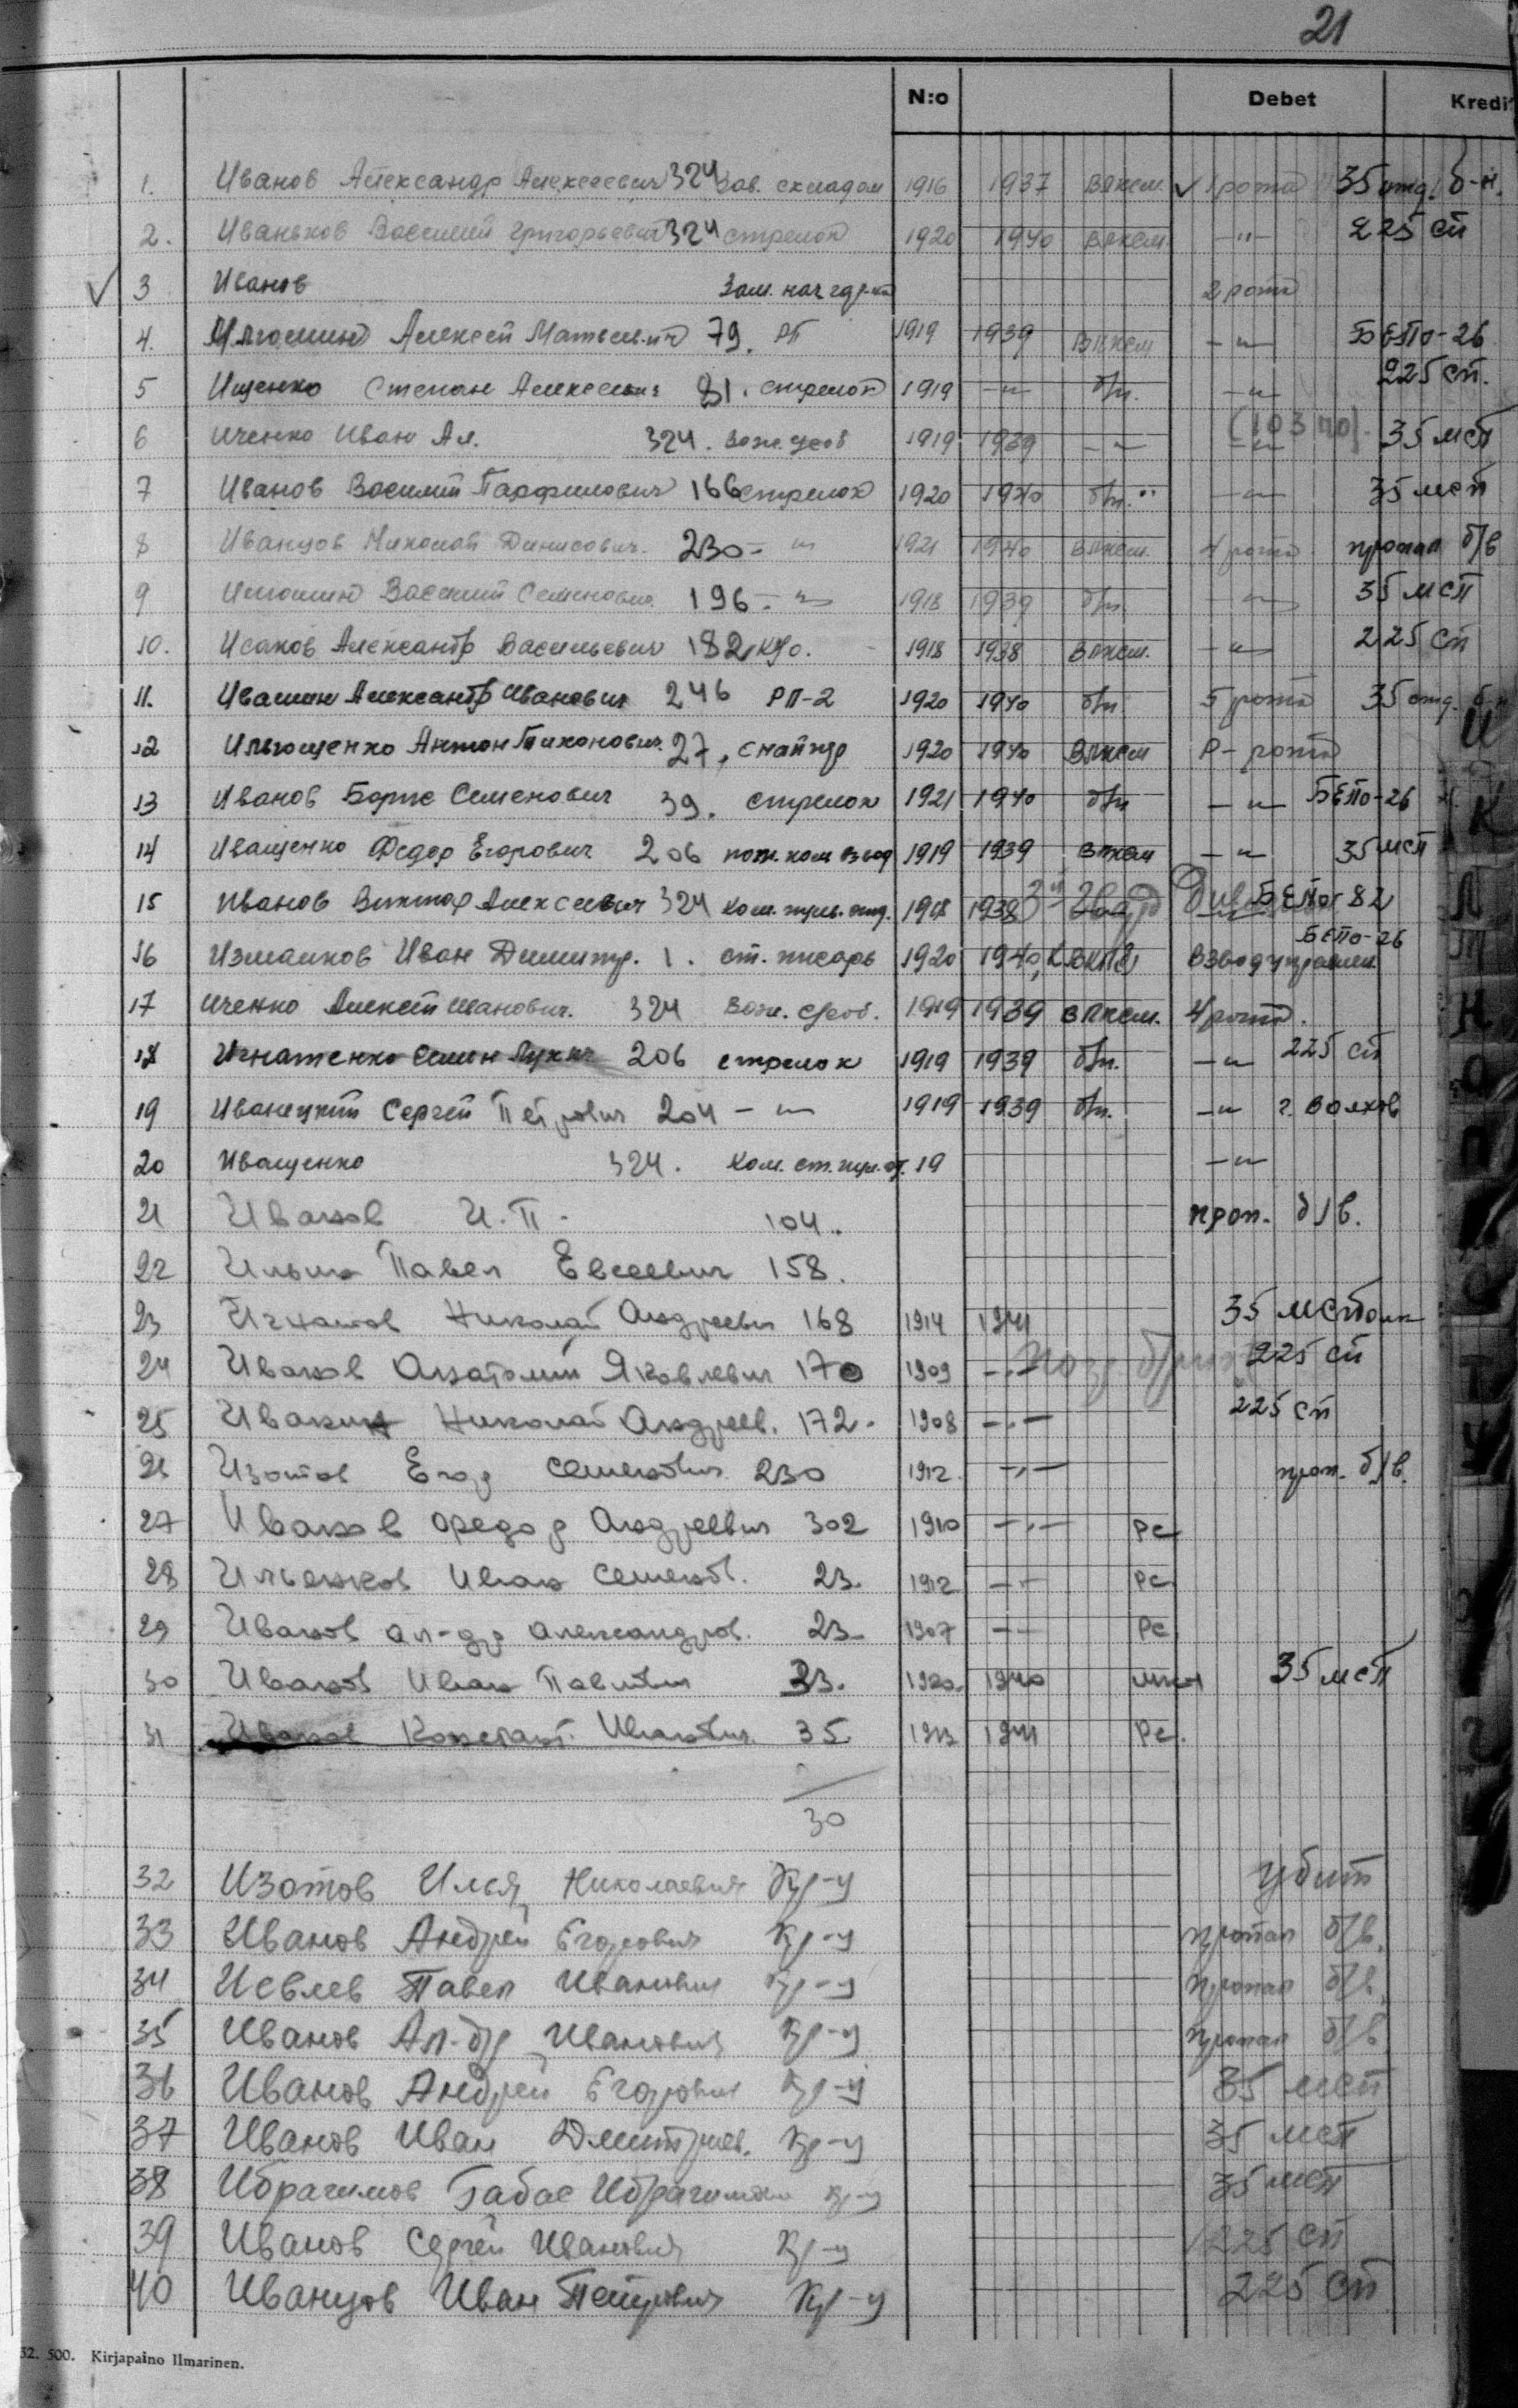 21
N:o Debet Kredit
1. Иванов Александр Алексеевич 324 зав. складом 1916 1937 ВЛКСМ. √ 1 рота 35 отд. б-н.
2. Иваньков Василий Григорьевич 324 стрелок 1920 1940 ВЛКСМ -"- 225 сп
√ 3 Иванов Зам. нач 2 рота
4. Алексей 79. РП 1919 1939 ВЛКСМ -"- БЕПО-26
5 Ищенко Степан Алексеевич 81. стрелок 1919 -"- б/п. -"- 225 сп.
6 Иченко Иван Ал. 324. 1919 1939 -"- -"- (103 по). 35 мсп
7 Иванов Василий Парфилович 166 стрелок 1920 1940 б/п. -"- 35 мсп
8 Иванцов Николай Динисович. 230 - " 1921 1940 ВЛКСМ. 4 рота пропал б/в
9 Василий Семенович 196. - " 1918 1939 б/п. -"- 35 мсп
10. Исаков Александр Васильевич 182 1918 1938 ВЛКСМ. -"- 225 сп
11. Ивашин Александр Иванович 246 РП-2 1920 1940 б/п 5 рота 35 отд. б-н
12 Ильющенко Антон Тихонович. 27, снайпер 1920 1940 ВЛКСМ Р-рота
13 Иванов Борис Семенович 39. стрелок 1921 1940 б/п -"- БЕПО-26
14 Иващенко Федор Егорович 206 пом. ком взвод 1919 1939 ВЛКСМ -"- 35 мсп
15 Иванов Виктор Алексеевич 324 ком. отд. 1918 1938 БЕПО-82
16 Измайков Иван Димитр. 1. ст. писарь 1920 1940 Взвод управлен. БЕПО-26
17 Иченко Алексей Иванович. 324 1919 1939 ВЛКСМ. 4 рота.
18 Игнатенко Семен Лукич 206 стрелок 1919 1939 б/п. -"- 225 сп
19 Иванецкий Сергей Петрович 204 - " 1919 1939 б/п. -"- г. Волхов
20 Иващенко 324. Ком. ст. 19 -"-
21 Иванов И.П. 104. проп. б/в.
22 Ильин Павел Евсеевич 158.
23 Игнатов Николай Андреевич 168 1914 1941 35 мсп
24 Иванов Анатолий Яковлевич 170 1909 -"- 225 сп
25 Ивакин Николай Андреев. 172. 1908 -"- 225 сп
26 Изотов Егор Семенович 230 1912. -"- проп. б/в.
27 Иванов Федор Андреевич 302 1910 -"- РС
28 Ильенков Иван Семенов. 23. 1912 -"- РС
29 Иванов Ал-др Александров. 23 1907 -"- РС
30 Иванов Иван Павлович 23. 1920. 1940 35 мсп
31 Иванов Констант. Иванович. 35 1913 1941 РС.
30
32 Изотов Илья Николаевич Кр-ц убит
33 Иванов Андрей Егорович Кр-ц пропал б/в.
34 Иевлев Павел Иванович Кр-ц пропал б/в.
35 Иванов Ал-др Иванович Кр-ц пропал б/в
36 Иванов Андрей Егорович Кр-ц 35 мсп
37 Иванов Иван Дмитриев. Кр-ц 35 мсп
38 Ибрагимов Габас Кр-ц 35 мсп
39 Иванов Сергей Иванович Кр-ц 225 сп
40 Иванцов Иван Петрович Кр-ц 225 сп
И
К
Л
М
Н
О
П
С
Т
У
52. 500. Kirjapaino Ilmarinen.